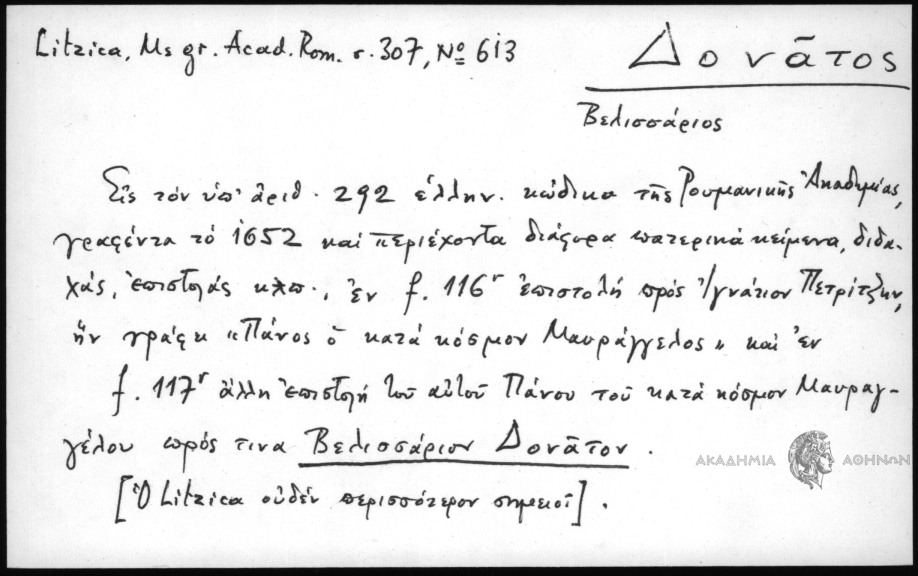 Litzica, Ms gr. Acad. Rom. σ. 307, Nº 613
Δονᾶτος
Βελισσάριος
Εἰς τόν ὑπ' ἀριθ. 292 ἑλλην. κώδικα τῆς Ρουμανικῆς Ἀκαδημίας,
γραφέντα τό 1652 καί περιέχοντα διάφορα πατερικά κείμενα, διδα-
χάς, ἐπιστολάς κλπ., ἐν f. 116ʳ ἐπιστολή πρός Ἰγνάτιον Πετρίτζην,
ἥν γράφει «Πάνος ὁ κατά κόσμον Μαυράγγελος» καί ἐν
f. 117ʳ ἄλλη ἐπιστολή τοῦ αὐτοῦ Πάνου τοῦ κατά κόσμον Μαυραγ-
γέλου πρός τινα Βελισσάριον Δονᾶτον.
[Ὁ Litzica οὐδέν περισσότερον σημειοῖ].
ΑΚΑΔΗΜΙΑ ΑΘΗΝΩΝ